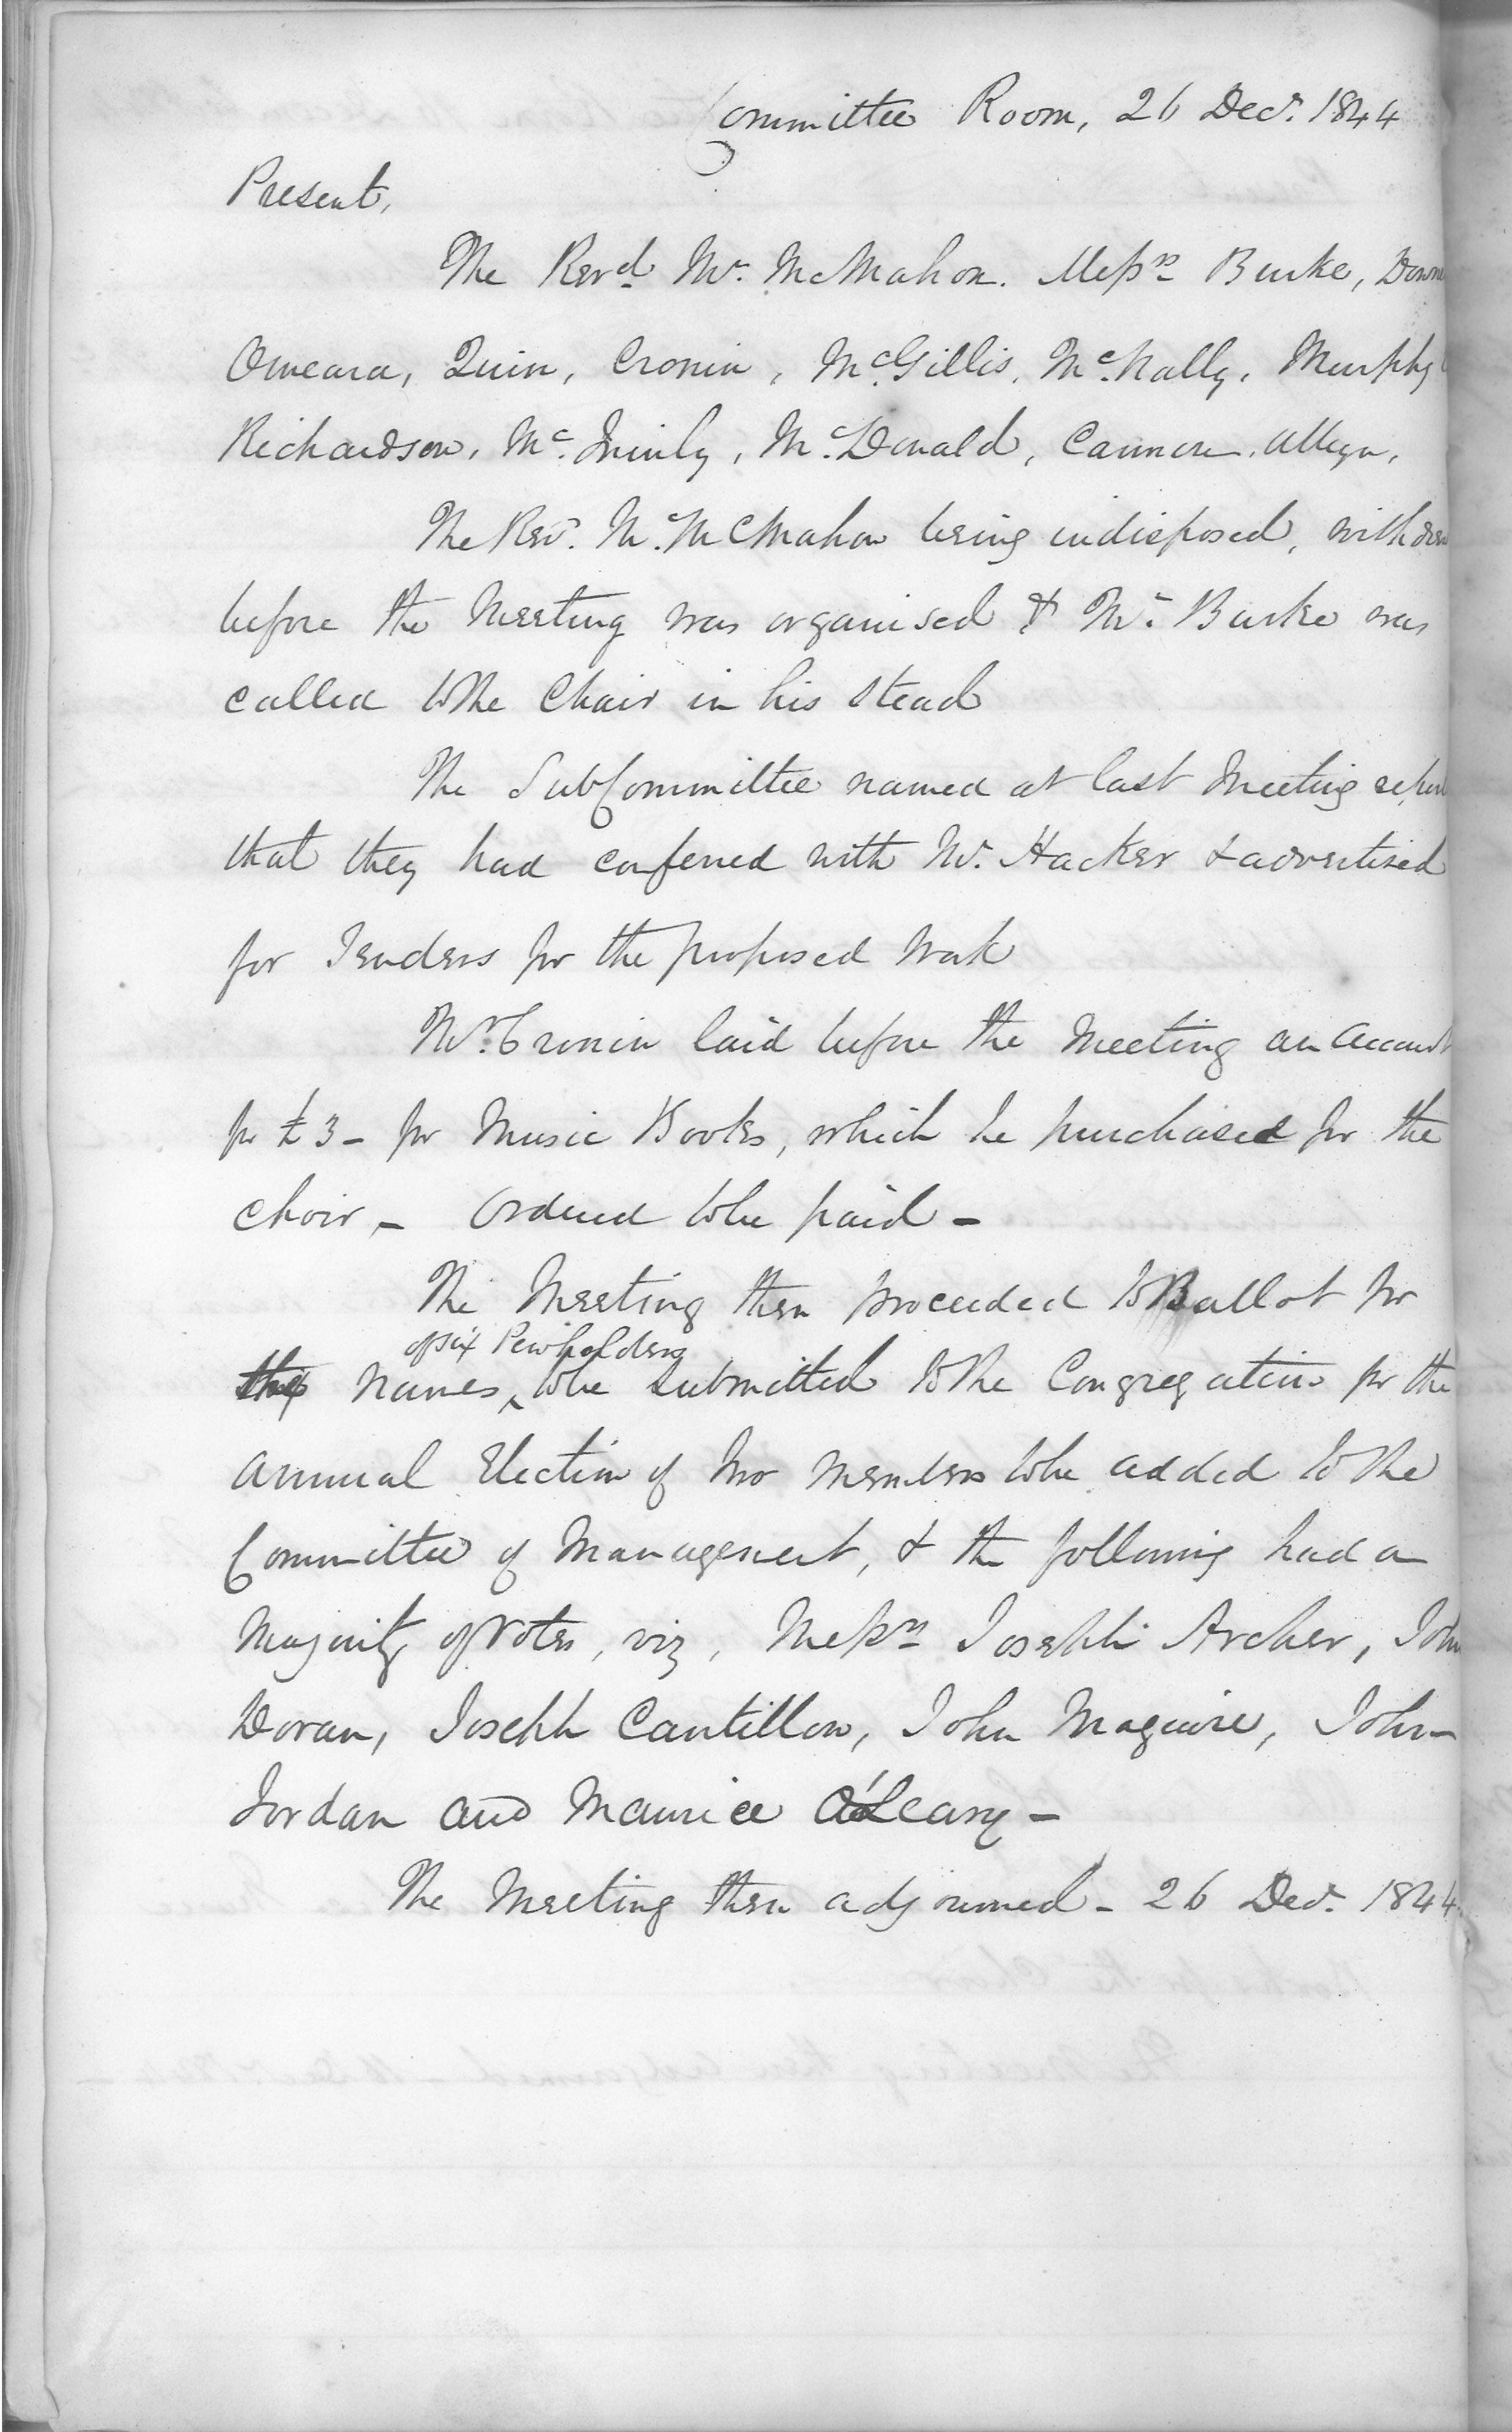 Committee Room, 26 Decr. 1844
Present,
The Revd. Mr. McMahon. Messrs Burke,
Omeara, Quin, Cronin, McGillis, McNally, Murphy
Richardson, McIninly, McDonald, Cannon, Alleyn,
The Revd. Mr. McMahon being indisposed, withdrew
before the Meeting was organised & Mr. Burke was
called to the Chair in his stead
The SubCommittee named at last Meeting
that they had conferred with Mr. Hacker & advertised
for Tenders for the proposed work
Mr. Cronin laid before the Meeting an account
for £3 - for Music Books, which he purchased for the
choir, - Ordered to be paid -
The Meeting then proceeded to Ballot for
of six Pewholders
the names, to be submitted to the Congregation for the
annual Election of two members to be added to the
Committee of Management, & the following had a
Majority of Votes, viz, Messrs Joseph Archer, John
Doran, Joseph Cantillon, John Maguire, John
Jordan and Maurice O'Leary -
The Meeting then adjourned - 26 Decr. 1844